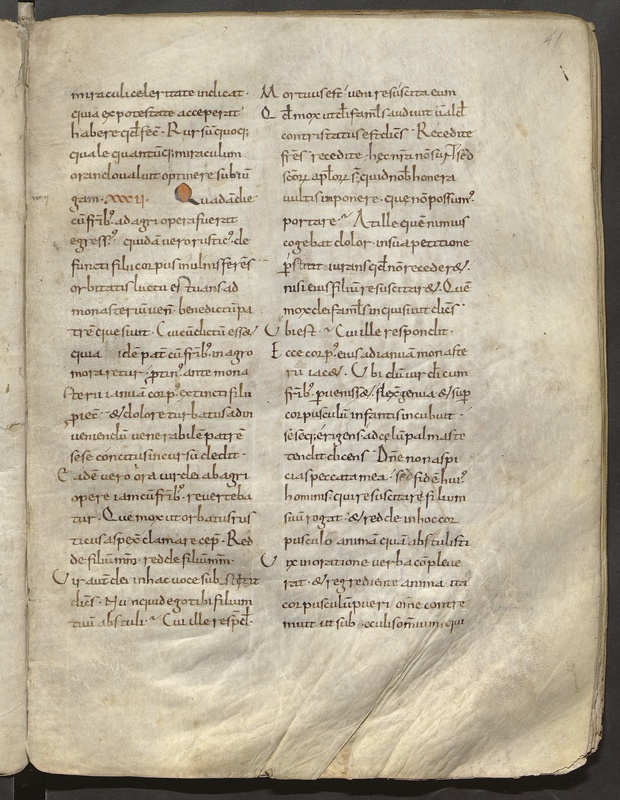 41
miraculi celeritate indicat.
quia ex potestate acceperit
habere qđ fec̄. Rursū quoq;
quale quantūq; miraculum
orando valuit optinere subiū
gam. xxxii. Quadā die
cū fr̄ib; ad agri opera fuerat
egress᾽. quidā vero rustic᾽. de
functi filii corpus in ulnis ferēs
orbitatis luctu estuans ad
monasteriū ven̄. benedictū pa
trē quesiuit. Cui cū dictū esse&
quia idē pat̄ cū fr̄ib; in agro
moraretur. ꝓtin᾽ ante mona
sterii ianuā corp᾽ extincti filii
ꝓiec̄. & dolore turbatus ad in
veniendū venerabilē patrē
sese concitus in cursū dedit.
Eadē vero ora vir dei ab agri
opere iam cū fr̄ib; reverteba
tur. Quē mox ut orbatus rus
ticus aspex̄ clamare cep̄. Red
de filiū m̄m. redde filiū m̄m.
Vir autē dei in hac voce substetit
dic̄s. Nunquid ego tibi filium
tuū abstuli? Cui ille respđ.
Mortuus est. veni resuscita eum
Qđ mox ut dī faml̄s audivit valđ
contristatus est dic̄s. Recedite
fr̄es recedite. hec nr̄a non sūt. sed
sc̄or̄ apl̄or̄ s̄. quid nob̄ honera
vultis imponere. que nō possum᾽
portare? At ille quē nimius
cogebat dolor. in sua petitione
ꝑstitit iurans qđ nō recedere&.
nisi eius filiū resuscitare&. Quē
mox dei faml̄s inquisiuit dic̄s.
Vbi est? Cui ille respondit.
Ecce corp᾽ eius ad ianuā monaste
rii iac&. Vbi dū vir dī cum
fr̄ib; ꝑvenisse&. flex̄ genua & sup̄
corpusculū infantis incubuit.
seseq; erigens ad celū palmas te
tendit dicens. Dn̄e non aspi
cias peccata mea. sed fidē hui᾽
hominis qui resuscitare filium
suū rogat. & redde in hoc cor
pusculo animā quā abstulisti
Vix in oratione verba cōpleue
rat. & regrediente anima ita
corpusculū pueri om̄e contre
muit ut sub oculis omnium qui